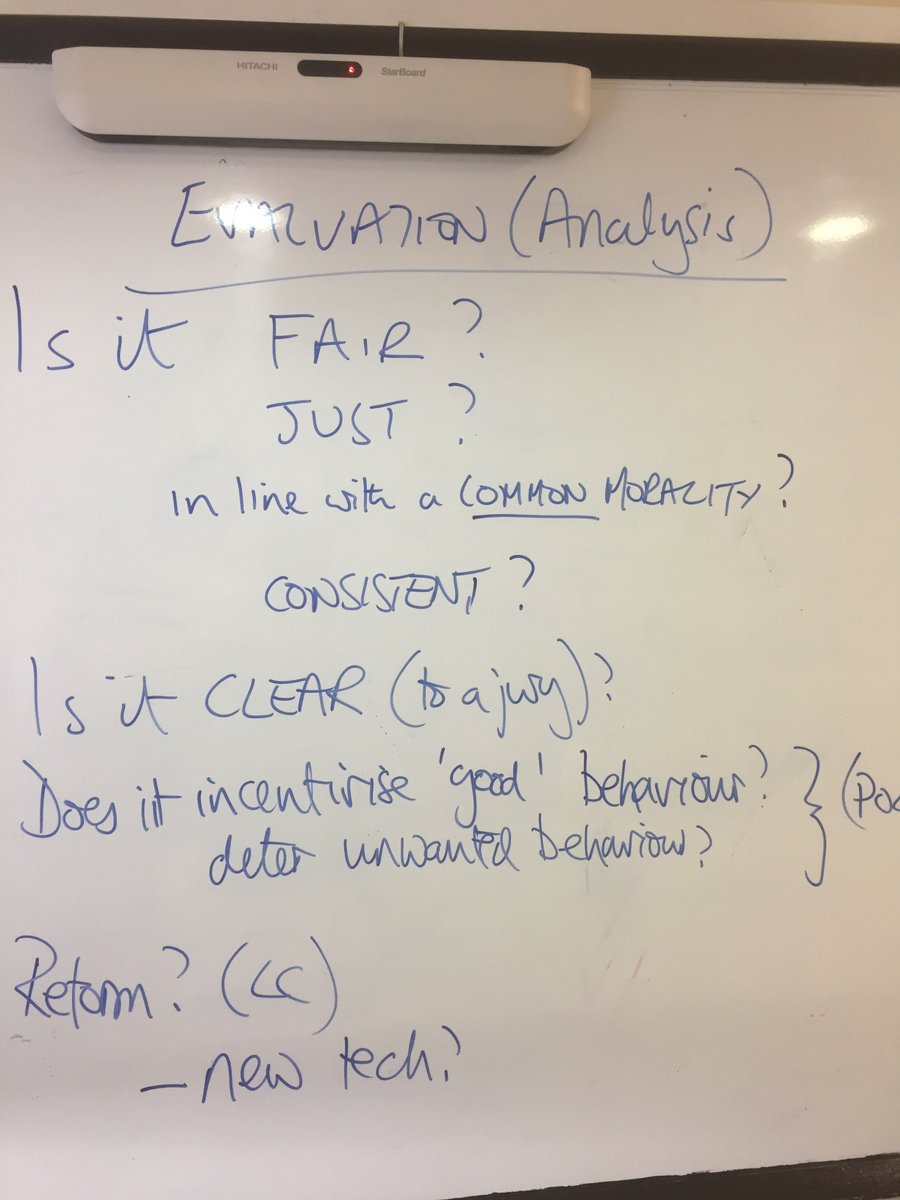 HITACHI StarBoard
EVALUATION (Analysis)
Is it FAIR?
JUST?
in line with a COMMON MORALITY?
CONSISTENT?
Is it CLEAR (to a jury)?
Does it incentivise 'good' behaviour?
deter unwanted behaviour?
Reform? (LC)
- new tech?